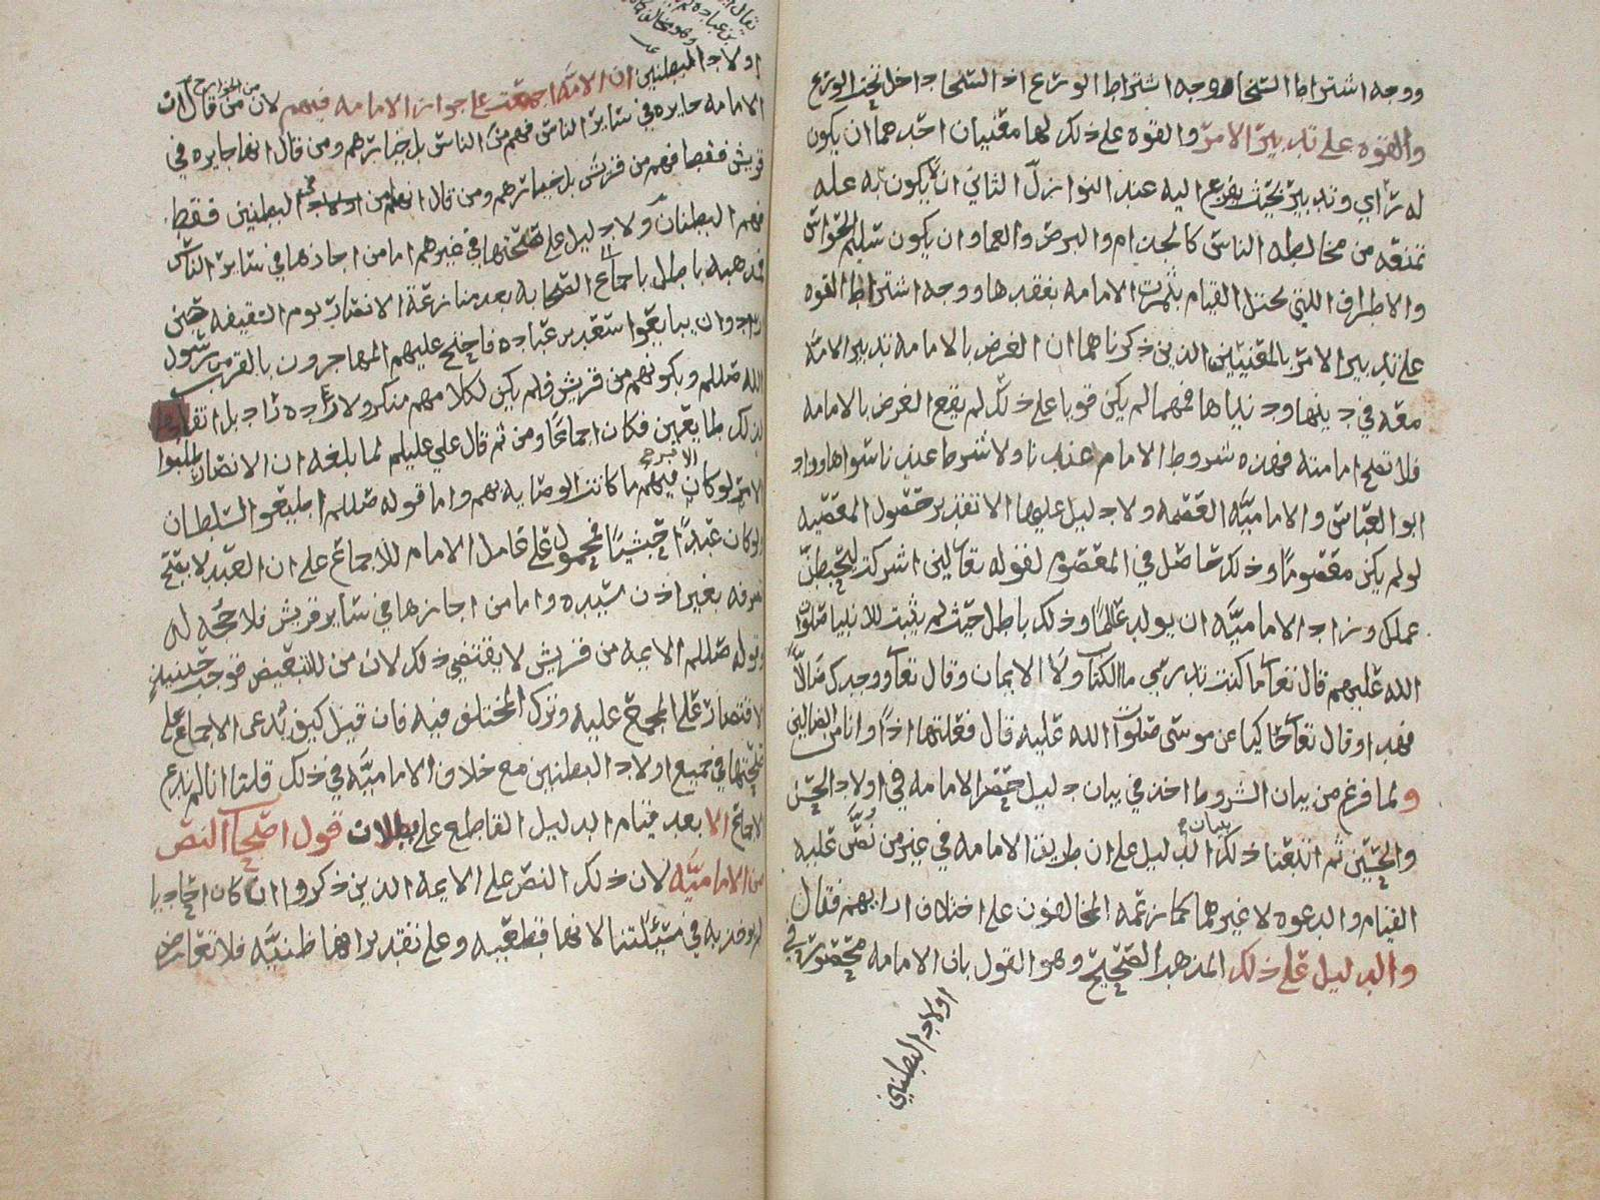 ووجه اشتراط السخا هو وجه اشتراط الورع اذ السخا داخل تحت الورع
والقوه على تدبير الامر والقوه على ذلك لها معنيان احدهما ان يكون
له راي وتدبير بحيث يفزع اليه عند النوازل الثاني ان لا يكون به عله
تمنعه من مخالطه الناس كالجذام والبرص والعما وان يكون سليم الحواس
والاطراف اللتي يختل القيام بثمرت الامامه بفقدها ووجه اشتراط القوه
على تدبير الامر بالمعنيين الذين ذكرناهما ان الغرض بالامامه تدبير الامه
معه في دينها ودنياها فمهما لم يكن قويا على ذلك لم يقع الغرض بالامامه
فلا تصلح امامته فهذه شروط الامام عندنا ولا شرط عندنا سواها وزاد
ابو العباس والاماميه العصمه ولا دليل عليها الا تقدير حصول المعصيه
لو لم يكن معصوما وذلك حاصل في المعصوم لقوله تعالى لئن اشركت ليحبطن
عملك وزاد الاماميه ان يولد عالما وذلك باطل حيث لم يثبت للانبيا صلوات
الله عليهم قال تعا ما كنت تدري ما الكتاب ولا الايمان وقال تعا ووجدك ضالا
فهدا وقال تعا حاكيا عن موسى صلوات الله عليه قال فعلتها اذا وانا من الضالين
ولما فرغ من بيان الشروط اخذ في بيان دليل حصر الامامه في اولاد الحسن
والحسين ثم اتبعنا ذلك بيان الدليل على ان طريق الامامه في غير من نص عليه
القيام والدعوه لا غيرهما كما زعمه المخالفون على اختلاف ارايهم فقال
والدليل على ذلك المذهب الصحيح وهو القول بان الامامه محصوره في
اولاد البطنين
اولاد البطنين ان الامه اجمعت على جواز الامامه فيهم لان من قال من الخوارج ان
الامامه جايزه في ساير الناس فهم من الناس بل خيارهم ومن قال انها جايزه في
قريش فقط فهم من قريش بل خيارهم ومن قال انها في البطنين فقط
فهم البطنان ولا دليل على صحتها في غيرهم اما من اجازها في ساير الناس
فمذهبه باطل باجماع الصحابه بعد منازعة الانصار يوم السقيفه حين
ارادوا ان يبايعوا سعد بن عباده فاحتج عليهم المهاجرون بالقرب من رسول
الله صللم وبكونهم من قريش فلم يكن لكلامهم منكر ولا راده راد بل انقادوا
لذلك طايعين فكان اجماعا ومن ثم قال علي عليلم لما بلغه ان الانصار طلبوا
الامر لو كان الامر فيهم ما كانت الوصايه بهم واما قوله صللم اطيعوا السلطان
ولو كان عبدا حبشيا فمحمول على عامل الامام للاجماع على ان العبد لا يصح
تصرفه بغير اذن سيده واما من اجازها في ساير قريش فلا حجه له
وقوله صللم الايمه من قريش لا يقتضي ذلك لان من للتبعيض فوجب حينئذ
الاقتصار على المجمع عليه وترك المختلف فيه فان قيل كيف يدعى الاجماع على
صحتها في جميع اولاد البطنين مع خلاف الاماميه في ذلك قلنا انا لم ندع
الاجماع الا بعد قيام الدليل القاطع على بطلان قول اصحاب النص
من الاماميه لان ذلك النص على الايمه الذين ذكروا ان كان احاديا
لم يوخذ به في مسئلتنا لانها قطعيه وعلى تقدير انها ظنيه فلا تعارض